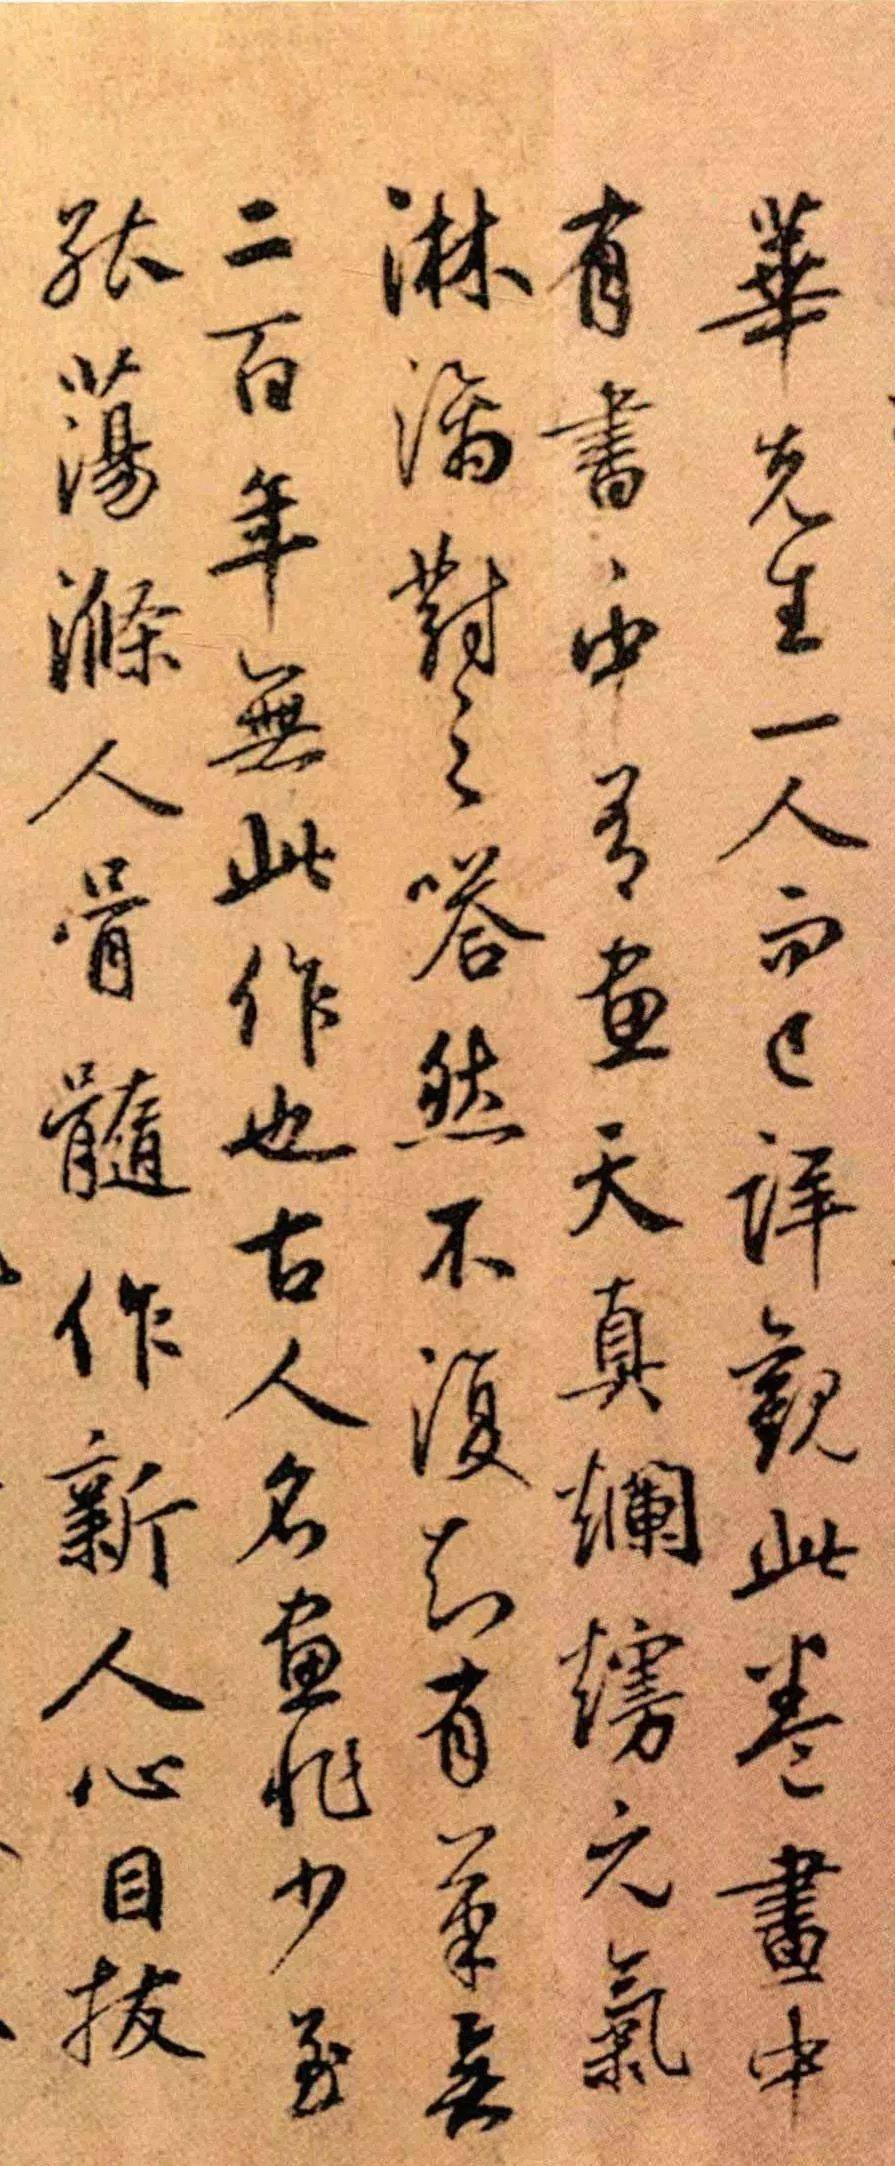 華先生一人而已詳觀此卷畫中
有書書中有畫天真爛熳元氣
淋漓對之嗒然不復知有筆矣
二百年無此作也古人名畫非少至
於蕩滌人骨髓作新人心目拔